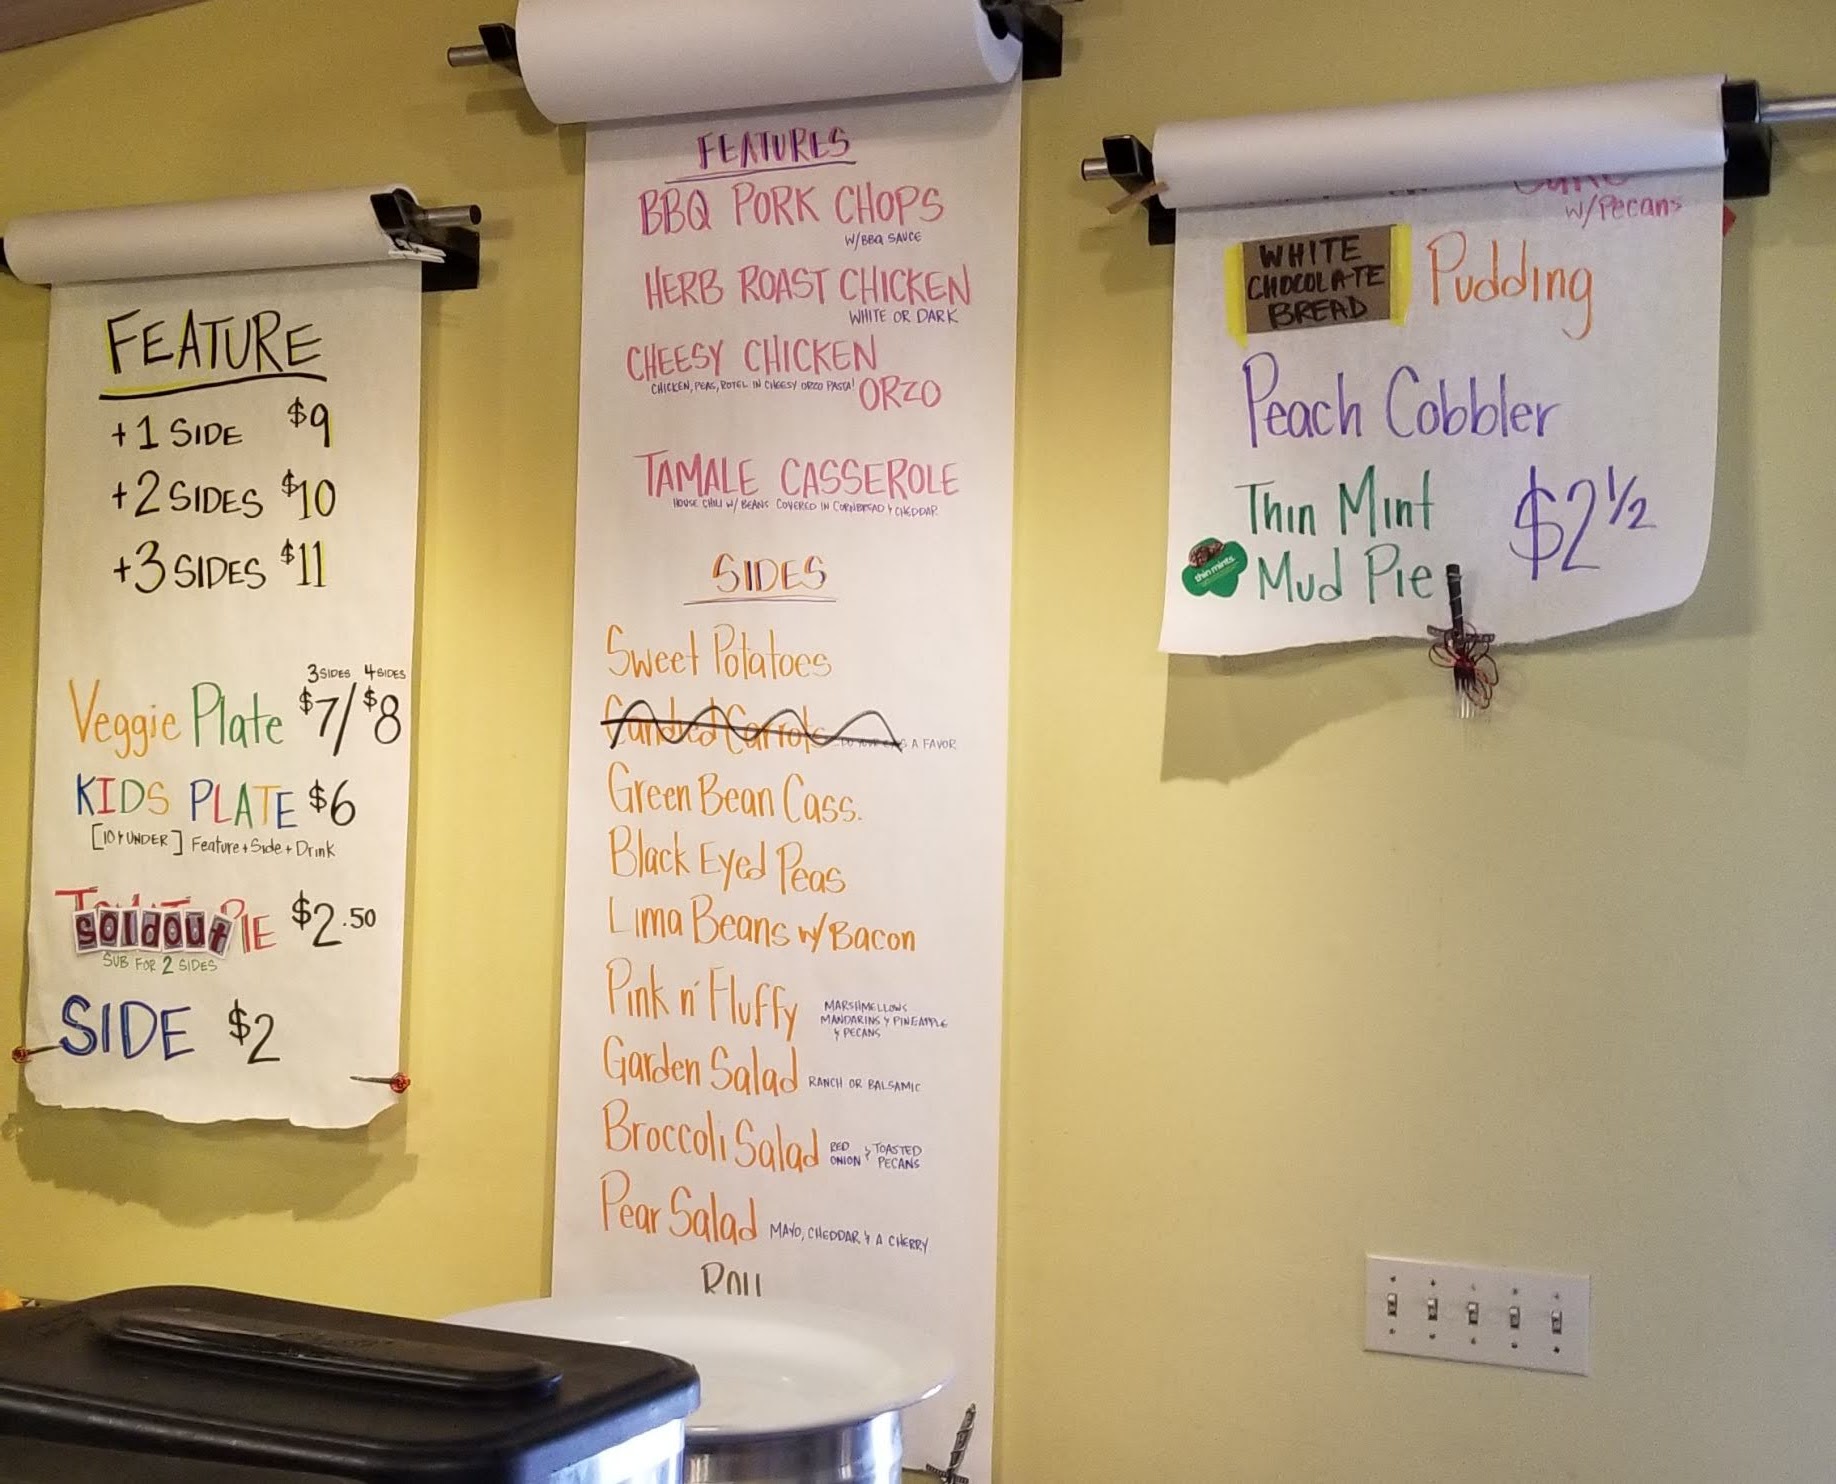 FEATURE
+1 SIDE $9
+2 SIDES $10
+3 SIDES $11
3 SIDES 4 SIDES
Veggie Plate $7/$8
KIDS PLATE $6
[10 & UNDER] Feature + Side + Drink
soldout PIE $2.50
SUB FOR 2 SIDES
SIDE $2
FEATURES
BBQ PORK CHOPS
W/BBQ SAUCE
HERB ROAST CHICKEN
WHITE OR DARK
CHEESY CHICKEN
CHICKEN, PEAS, ROTEL IN CHEESY ORZO PASTA! ORZO
TAMALE CASSEROLE
HOUSE CHILI W/ BEANS COVERED IN CORNBREAD & CHEDDAR
SIDES
Sweet Potatoes
Candied Carrots
A FAVOR
Green Bean Cass.
Black Eyed Peas
Lima Beans w/ Bacon
Pink n' Fluffy
MARSHMELLOWS
MANDARINS & PINEAPPLE
& PECANS
Garden Salad RANCH OR BALSAMIC
Broccoli Salad RED ONION & TOASTED PECANS
Pear Salad MAYO, CHEDDAR & A CHERRY
Roll
w/Pecans
WHITE
CHOCOLATE
BREAD
Pudding
Peach Cobbler
Thin Mint
Mud Pie
$2 1/2
thin mints